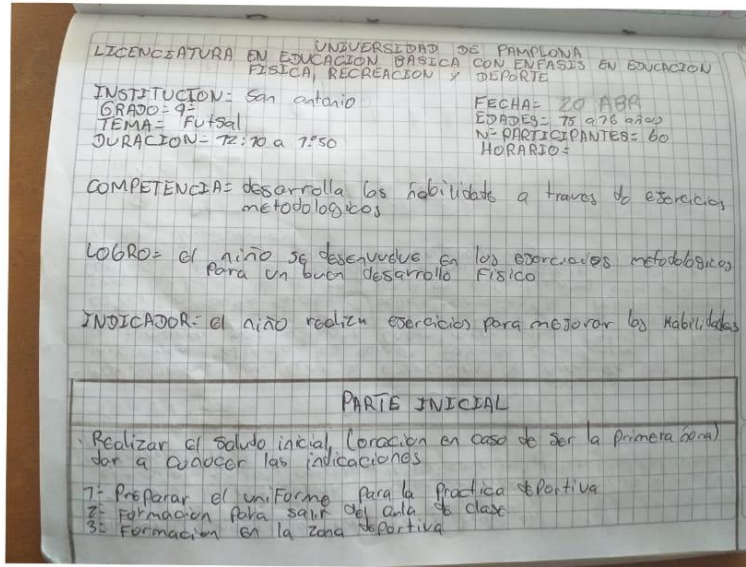 UNIVERSIDAD DE PAMPLONA
LICENCIATURA EN EDUCACION BASICA CON ENFASIS EN EDUCACION
FISICA, RECREACION Y DEPORTE
INSTITUCION= San antonio
FECHA= 20 ABR
GRADO= 9º
EDADES= 15 a 16 años
TEMA= Futsal
Nº PARTICIPANTES= 60
DURACION= 12:10 a 1:50
HORARIO=
COMPETENCIA= desarrolla las habilidate a traves de ejercicios
metodologicos
LOGRO= el niño se desenvuelve en los ejercicios metodologicos
Para un buen desarrollo Fisico
INDICADOR= el niño realiza ejercicios para mejorar las Habilidades
PARTE INICIAL
. Realizar el saludo inicial (oracion en caso de ser la primera hora)
dar a conocer las indicaciones
1= Preparar el uniforme Para la Practica deportiva
2= Formacion Para salir del aula de clase
3= Formacion en la zona deportiva